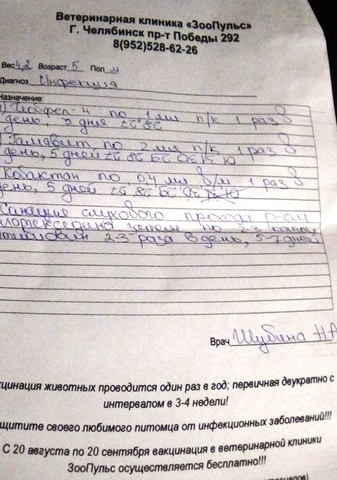 Ветеринарная клиника «ЗооПульс»
Г. Челябинск пр-т Победы 292
8(952)528-62-26
Вес 4,2 Возраст 5 Пол м
Диагноз Инфекция
Назначение:
по 1 мл п/к 1 раз в
день, 5 дней
Гамавит по 2 мл п/к 1 раз в
день, 5 дней
по 0,4 мл в/м 1 раз в
день, 5 дней
Санация слухового прохода р-ом
по 2-3 капли
2-3 раза в день, 5-7 дней
Врач Шубина Н А
кцинация животных проводится один раз в год; первичная двукратно с
интервалом в 3-4 недели!
щитите своего любимого питомца от инфекционных заболеваний!!!
С 20 августа по 20 сентября вакцинация в ветеринарной клиники
ЗооПульс осуществляется бесплатно!!!